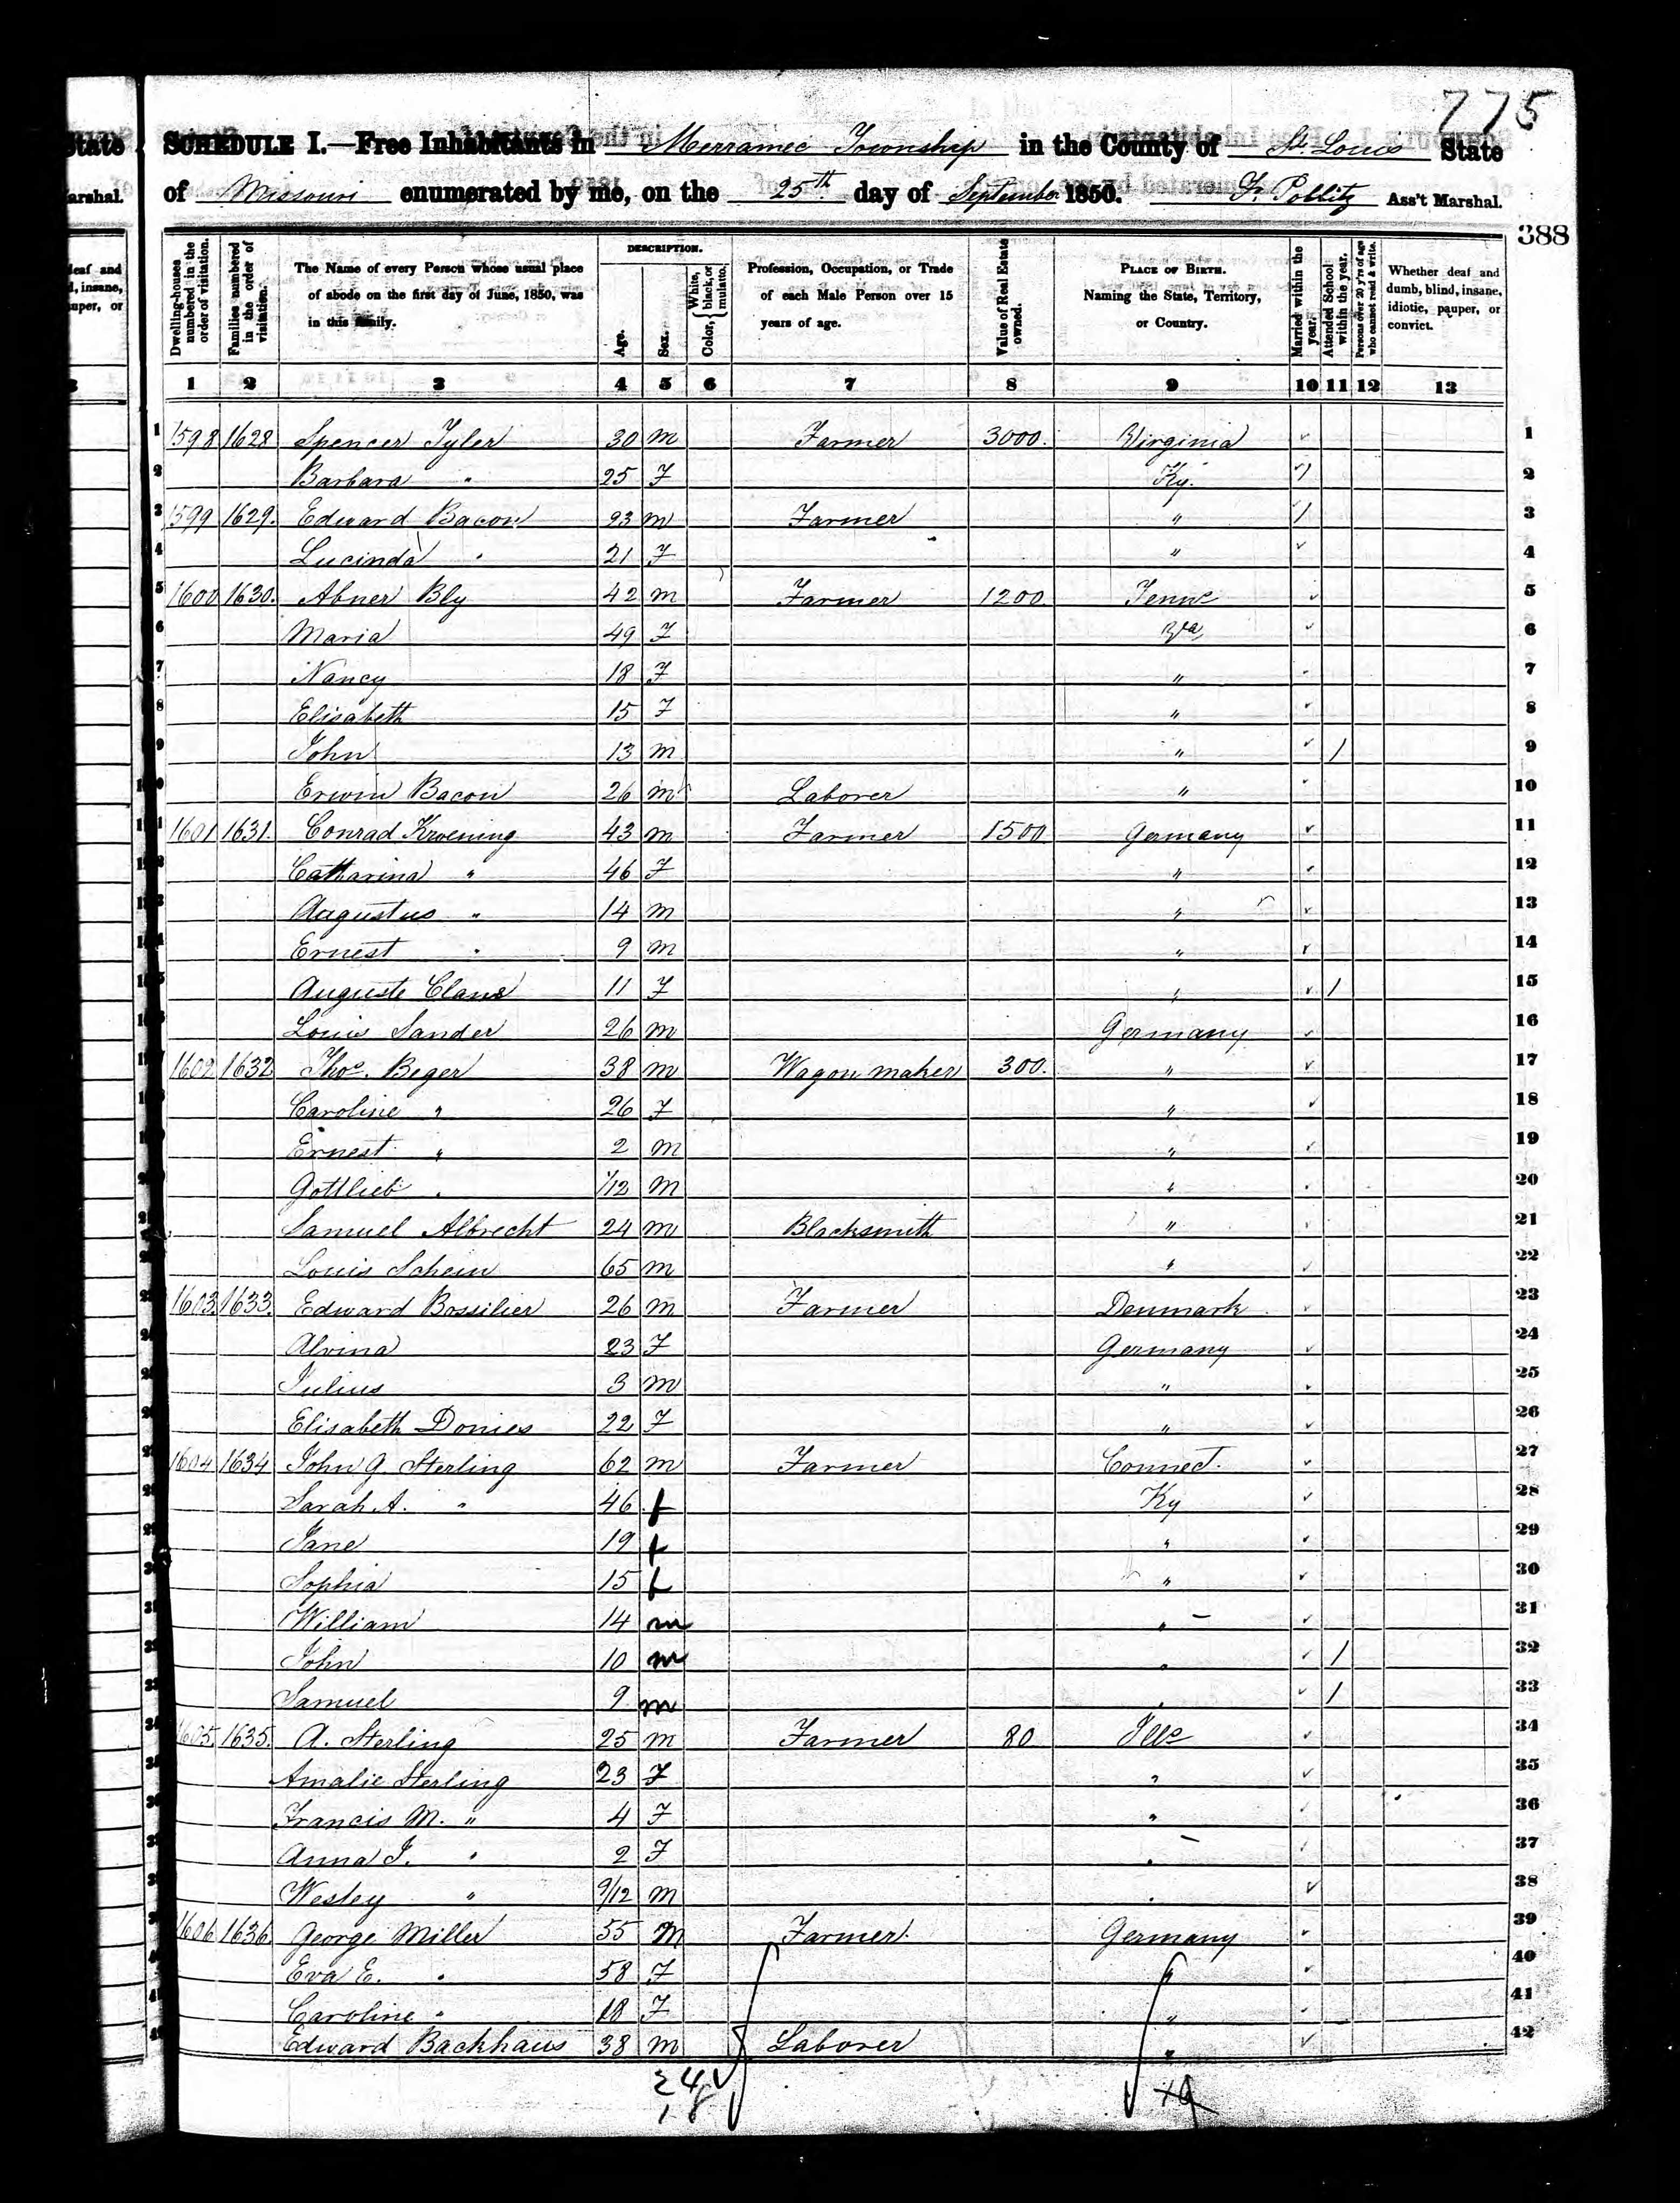 775
SCHEDULE I.—Free Inhabitants in Merramec Township in the County of St. Louis State
of Missouri enumerated by me, on the 25th day of September 1850. F. Pobbitz Ass't Marshal.
388
Dwelling-houses numbered in the order of visitation.
Families numbered in the order of visitation.
The Name of every Person whose usual place of abode on the first day of June, 1850, was in this family.
DESCRIPTION.
Age.
Sex.
Color, { White, black, or mulatto.
Profession, Occupation, or Trade of each Male Person over 15 years of age.
Value of Real Estate owned.
PLACE OF BIRTH. Naming the State, Territory, or Country.
Married within the year.
Attended School within the year.
Persons over 20 y'rs of age who cannot read & write.
Whether deaf and dumb, blind, insane, idiotic, pauper, or convict.
1 2 3 4 5 6 7 8 9 10 11 12 13
1 1598 1628 Spencer Tyler 30 m Farmer 3000. Virginia 1
2 Barbara " 25 F Ky. / 2
3 1599 1629. Edward Bacon 23 m Farmer " / 3
4 Lucinda " 21 F " 4
5 1600 1630. Abner Bly 42 m Farmer 1200. Tenne 5
6 Maria 49 F Va 6
7 Nancy 18 F " 7
8 Elisabeth 15 F " 8
9 John 13 m " / 9
10 Erwin Bacon 26 m Laborer " 10
11 1601 1631. Conrad Kroening 43 m Farmer 1500 Germany 11
12 Catharina " 46 F " 12
13 Augustus " 14 m " 13
14 Ernest " 9 m " 14
15 Auguste Claus 11 F " / 15
16 Louis Sander 26 m Germany 16
17 1602 1632 Thos. Beger 38 m Wagon maker 300. " 17
18 Caroline " 26 F " 18
19 Ernest " 2 m " 19
20 Gottlieb " 1/12 m " 20
21 Samuel Albrecht 24 m Blacksmith " 21
22 Louis Schein 65 m " 22
23 1603. 1633. Edward Bossilier 26 m Farmer Denmark 23
24 Alvina 23 F Germany 24
25 Julius 3 m " 25
26 Elisabeth Donies 22 F " 26
27 1604 1634 John G. Sterling 62 m Farmer Connect. 27
28 Sarah A. " 46 f Ky 28
29 Jane 19 f " 29
30 Sophia 15 f " 30
31 William 14 m " 31
32 John 10 m " / 32
33 Samuel 9 m " / 33
34 1605. 1635. A. Sterling 25 m Farmer 80 Ills 34
35 Amalie Sterling 23 F " 35
36 Francis M. " 4 F " 36
37 Anna J. " 2 F " 37
38 Wesley " 9/12 m " 38
39 1606 1636. George Miller 55 m Farmer. Germany 39
40 Eva E. " 58 F " 40
41 Caroline " 18 F " 41
42 Edward Backhaus 38 m Laborer " 42
24
18